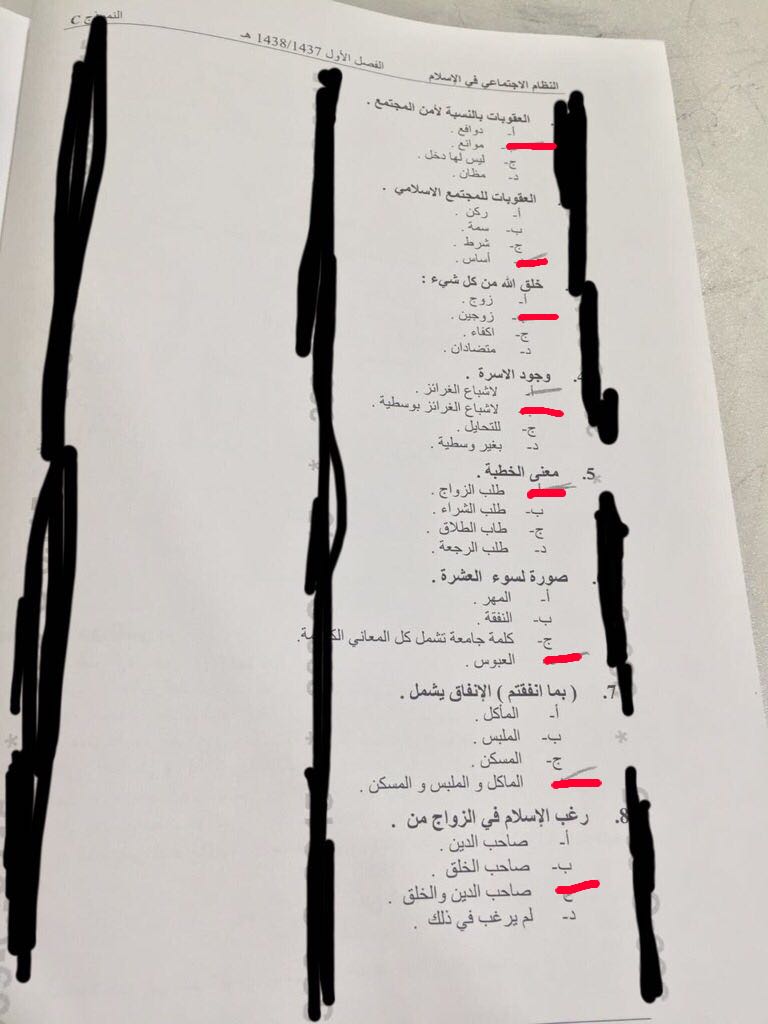 النموذج C
الفصل الأول 1438/1437 هـ
النظام الاجتماعي في الإسلام
العقوبات بالنسبة لأمن المجتمع .
أ- دوافع .
موانع .
ج- ليس لها دخل .
د- مظان .
العقوبات للمجتمع الاسلامي .
أ- ركن .
ب- سمة .
ج- شرط .
أساس .
خلق الله من كل شيء :
أ- زوج .
زوجين .
ج- اكفاء .
د- متضادان .
4. وجود الاسرة .
أ- لاشباع الغرائز .
لاشباع الغرائز بوسطية .
ج- للتحايل .
د- بغير وسطية .
5. معنى الخطبة .
طلب الزواج .
ب- طلب الشراء .
ج- طاب الطلاق .
د- طلب الرجعة .
صورة لسوء العشرة .
أ- المهر .
ب- النفقة .
ج- كلمة جامعة تشمل كل المعاني
العبوس .
7. ( بما انفقتم ) الإنفاق يشمل .
أ- المأكل .
ب- الملبس .
ج- المسكن .
الماكل و الملبس و المسكن .
8. رغب الإسلام في الزواج من .
أ- صاحب الدين .
ب- صاحب الخلق .
ج صاحب الدين والخلق .
د- لم يرغب في ذلك .